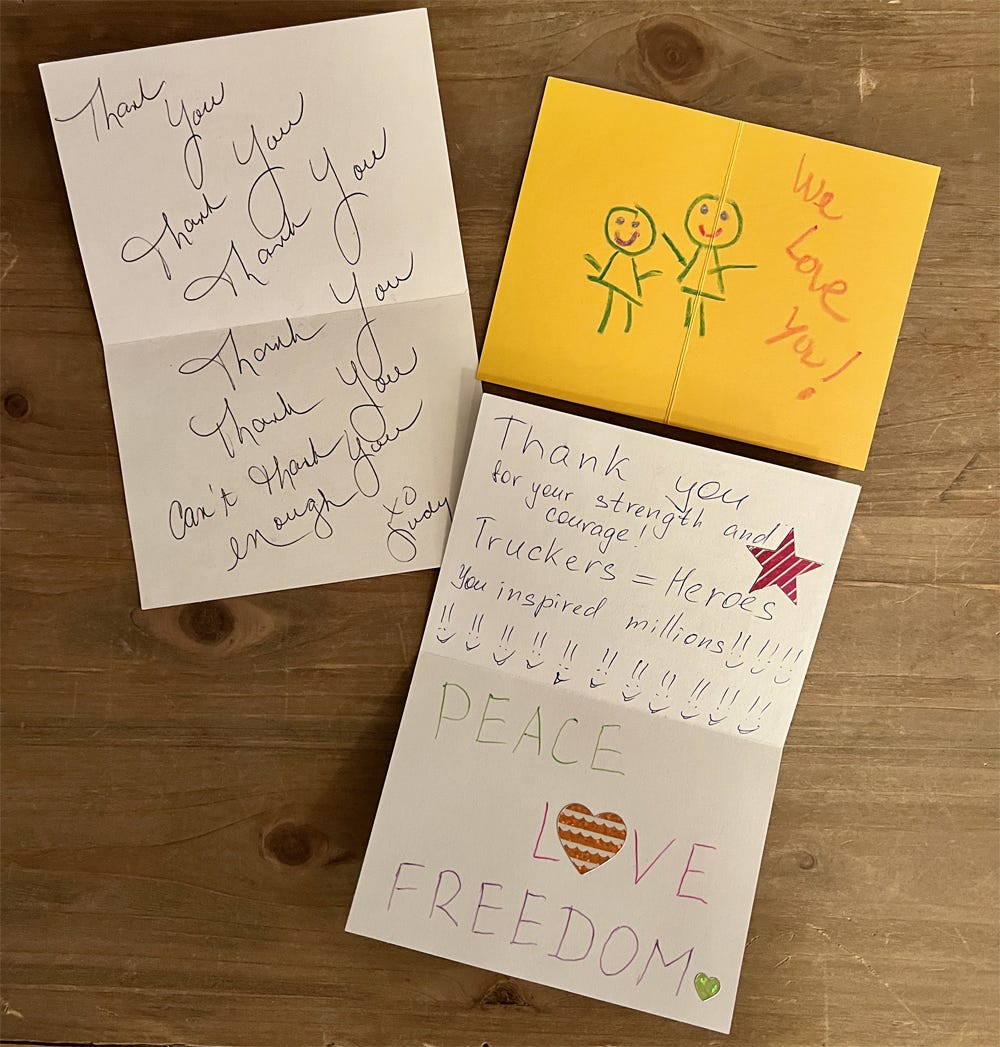 Thank
You
Thank You
Thank You
Thank You
Thank You
Can't thank you
enough
xo
Judy
We
Love
You!
Thank you
for your strength and
courage!
Truckers = Heroes
You inspired millions!! !! !!
!! !! !! !! !! !! !! !! !! !! !!
PEACE
LOVE
FREEDOM